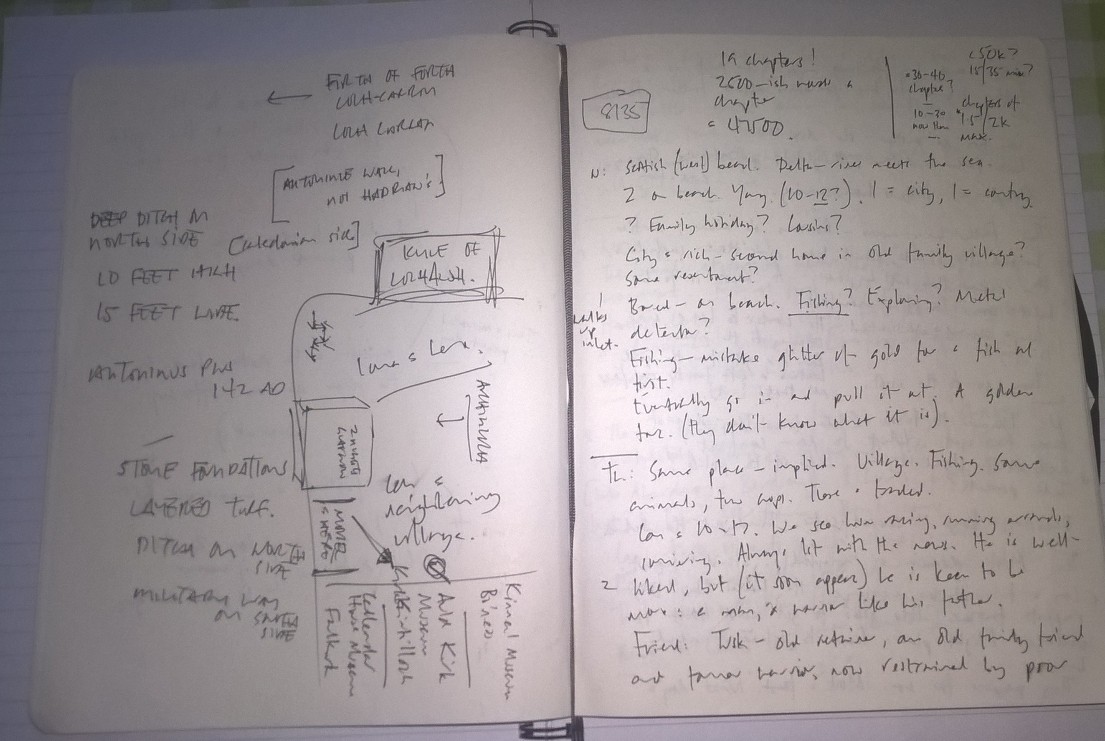 FIRTH OF FORTH
LOCH
[ANTONINE WALL,
NOT HADRIAN'S]
DEEP DITCH ON
NORTH SIDE [Caledonian side]
10 FEET HIGH
15 FEET WIDE.
KYLE OF
LOCHALSH.
ANTONINUS PIUS
142 AD
STONE FOUNDATIONS
LAYERED TURF.
DITCH ON NORTH
SIDE
MILITARY WAY
ON SOUTH
SIDE
neighbouring
village.
Kirkintilloch
Auld Kirk
Museum
Callendar
House Museum
Falkirk
Kinneil Museum
Bo'ness
19 chapters!
2500-ish words a
chapter
= 47500.
8135
<50k?
15/35 min?
30-40
chapters?
10-20
now then
chapters of
1.5/2k
max.
N: Scottish (west) beach. Delta - river meets the sea.
2 on beach. Young. (10-12?). 1 = city, 1 = country
? Family holiday? Cousins?
City = rich - second home in old family village?
Some resentment?
Bored - on beach. Fishing? Exploring? Metal
detector?
walks
up
inlet.
Fishing - mistake glitter of gold for a fish at
first.
Eventually go in and pull it out. A golden
torc. (they don't know what it is).
Th: Same place - implied. Village. Fishing. Some
animals, few crops. Those = traded.
We see him racing, running errands,
surviving. Always bit with the news. He is well-
2 liked, but (it soon appears) he is keen to be
more: a man, a warrior like his father.
Friend: Tusk - old retainer, an old family friend
and former warrior, now restrained by poor